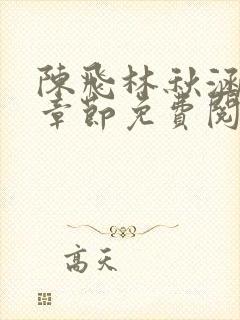 陳飛林秋涵
章節免費閱
高天